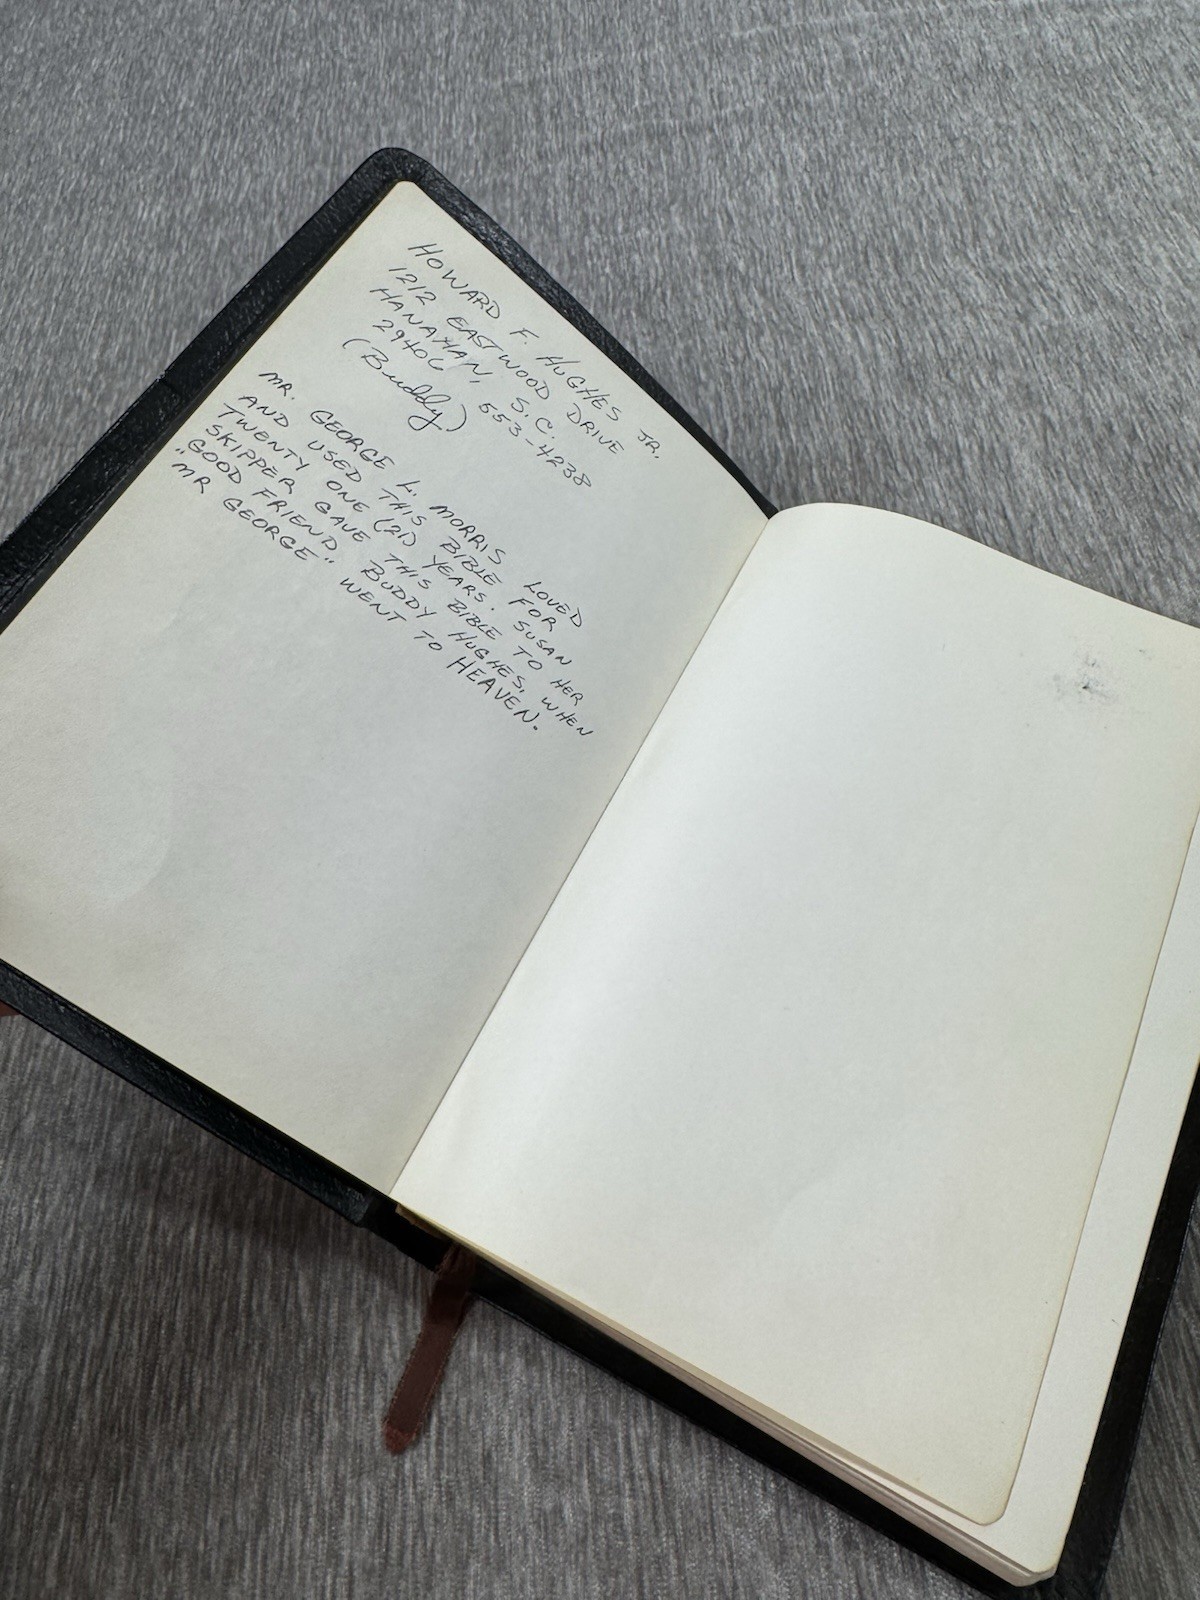 HOWARD F. HUGHES JR.
1212 EASTWOOD DRIVE
HANAHAN, S.C.
29406 553-4238
(Buddy)
MR. GEORGE L. MORRIS LOVED
AND USED THIS BIBLE FOR
TWENTY ONE (21) YEARS. SUSAN
SKIPPER GAVE THIS BIBLE TO HER
"GOOD FRIEND BUDDY HUGHES, WHEN
MR GEORGE" WENT TO HEAVEN.